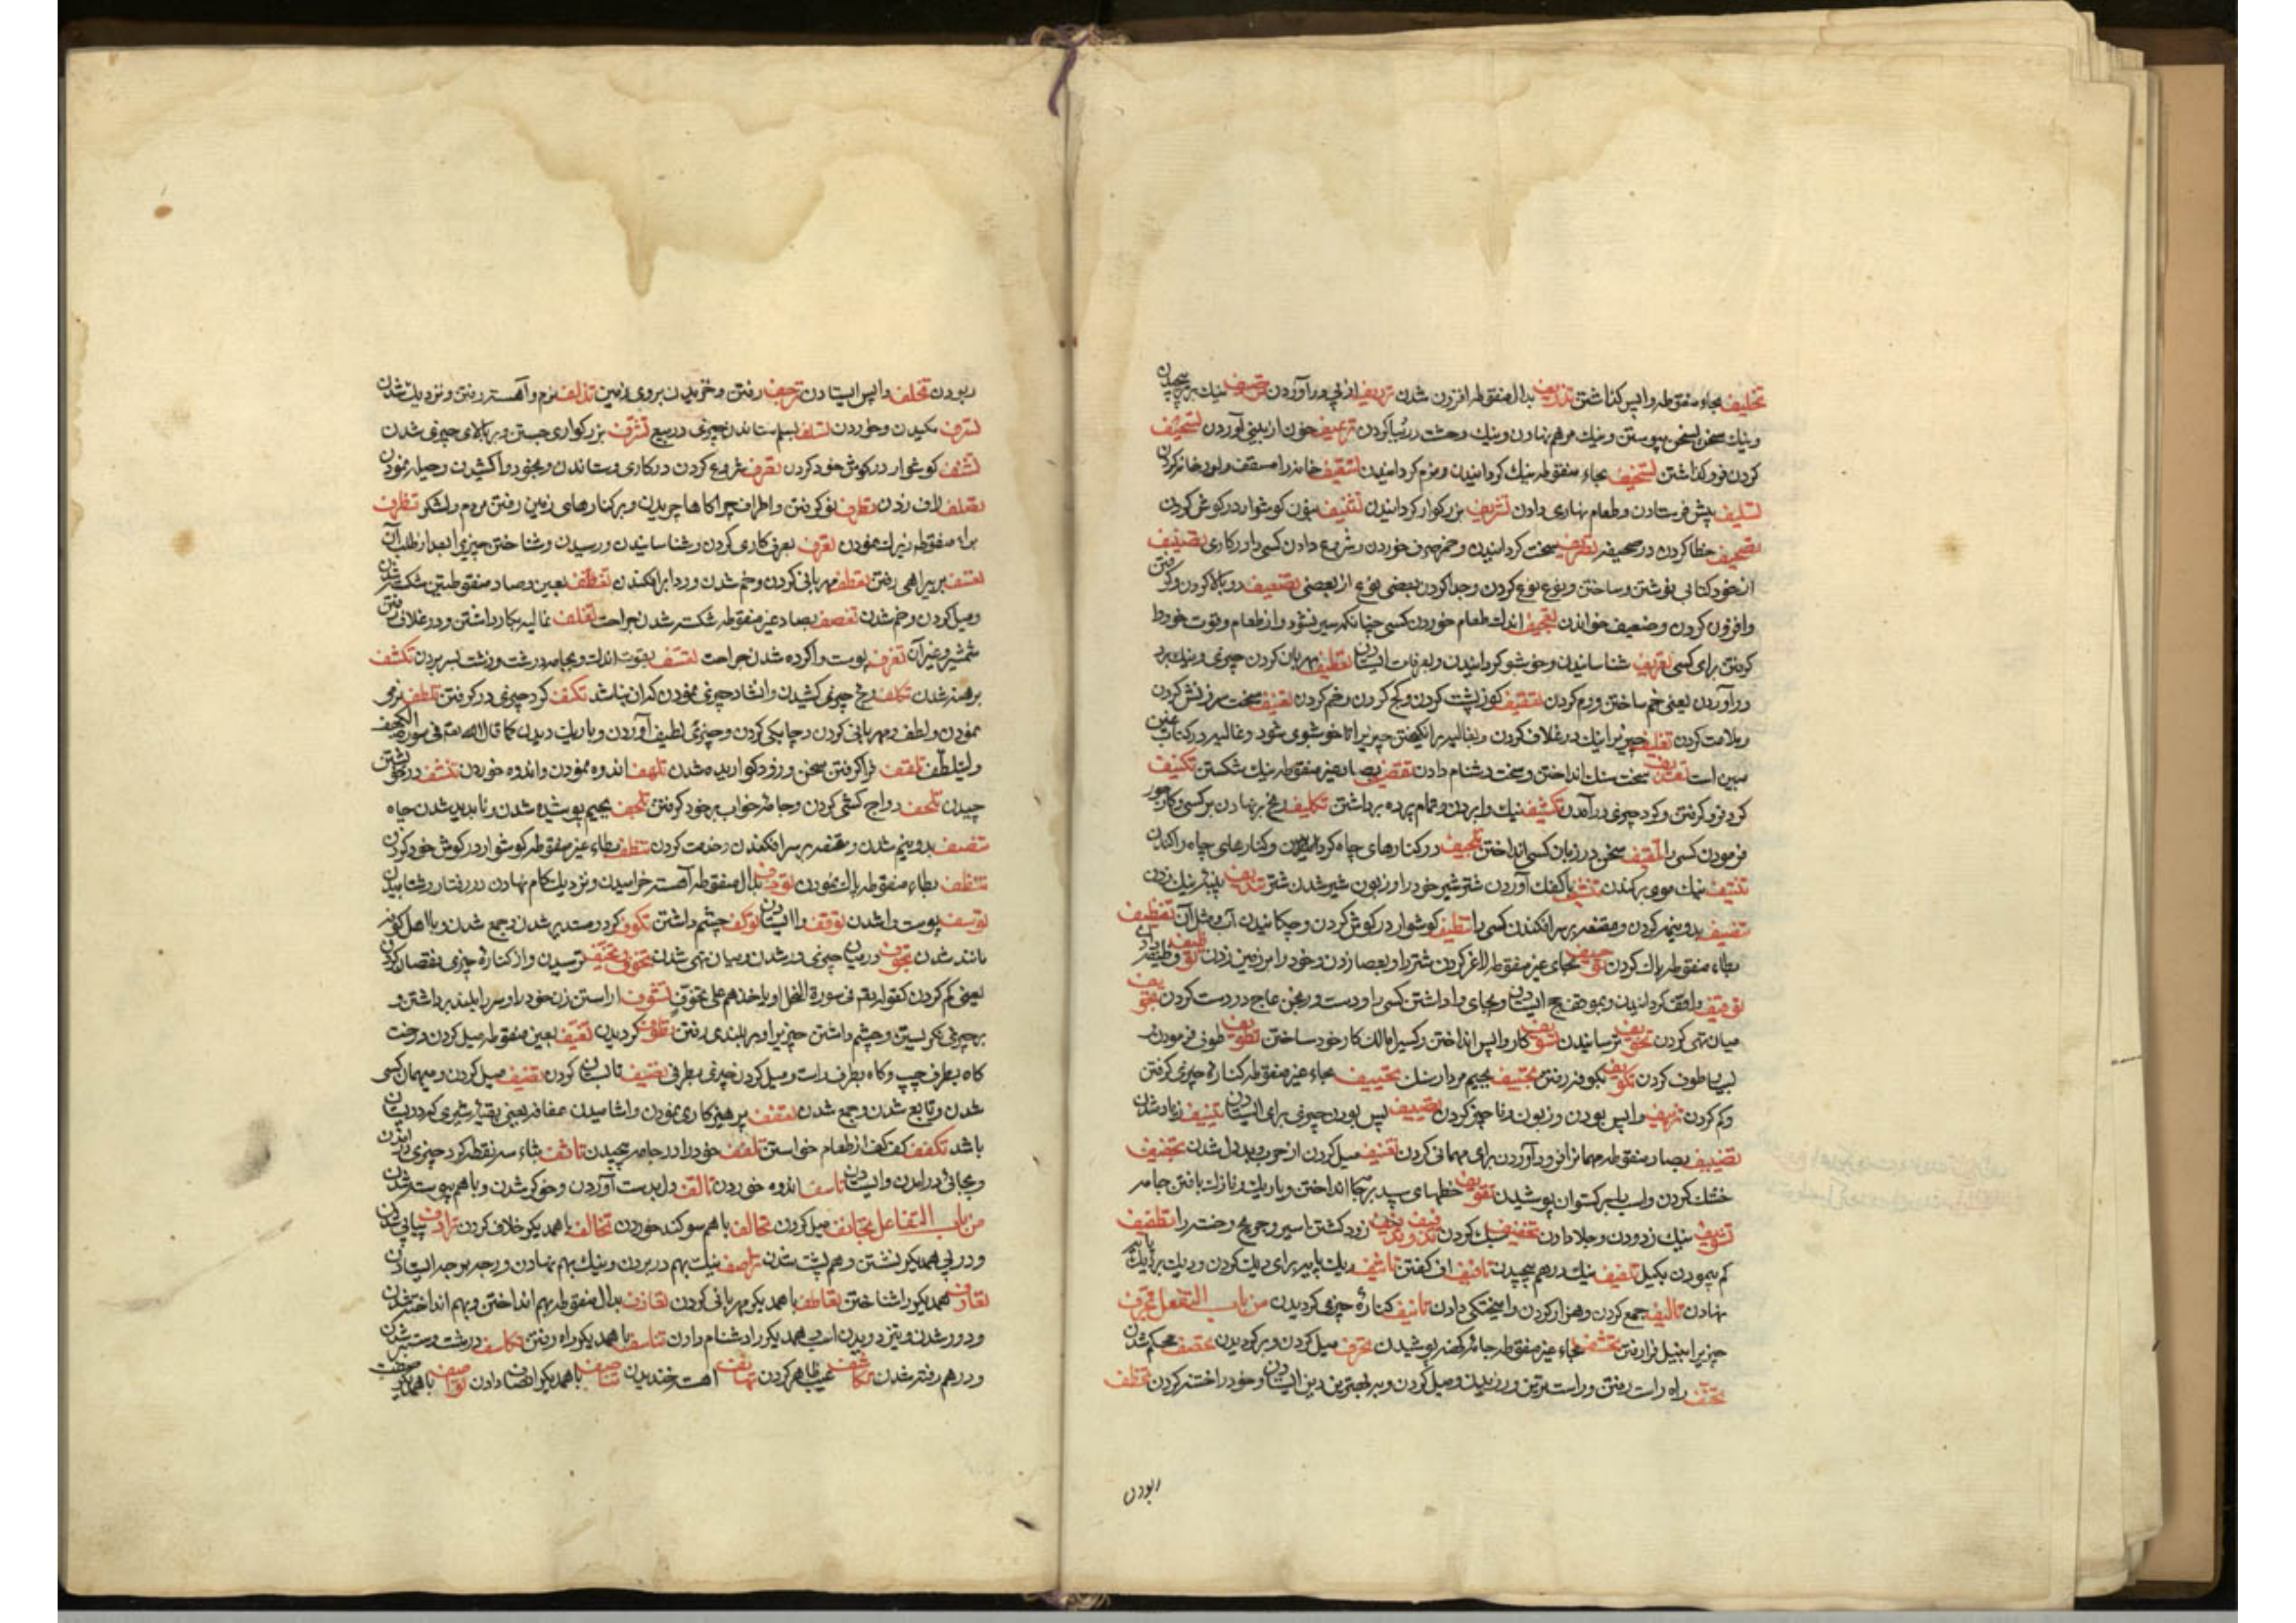 تخلیف بخاء منقوطه واپس گذاشتن تذریف بذال منقوطه افزون شدن تردیف از پی درآوردن ترصیف نیک بر هم پیچیدن
ونیک سخن بسخن پیوستن ونیک بر هم نهادن ونیک وحشت ترعیف خون از بینی آوردن تسجیف
کردن فرو گذاشتن تسخیف بخاء منقوطه نیک گردانیدن ونرم گردانیدن تسقیف خانه را مسقف
تسلیف پیش فرستادن وطعام نهاری دادن تشریف بزرگوار گردانیدن تشنیف بنون گوشوار در گوش کردن
تصحیف خطا کردن در صحیفه تصریف سخت گردانیدن وخمر صرف خوردن وشروع دادن کسی را در کاری تصنیف
از خود کتابی نوشتن وساختن ونوع نوع کردن وجدا کردن بعضی نوع از بعضی تضعیف دو بالا کردن
وافزون کردن وضعیف خواندن تعجیف اندک طعام خوردن کسی چنانکه سیر نشود واز طعام وقوت خود را
گرفتن برای کسی تعریف شناسانیدن وخوشبو گردانیدن وبعرفات ایستادن تعطیف مهربان کردن
درآوردن یعنی خم ساختن ونرم کردن تعقیف کوز پشت کردن وکج کردن وخم کردن تعنیف سخت سرزنش کردن
وملامت کردن تغلیف چیزیرا نیک در غلاف کردن وبغالیه برانگیختن چیزیرا تا خوشبوی شود وغالیه در کتاب
مبین است تقذیف سخت سنگ انداختن وسخت دشنام دادن تقصیف بصاد غیر منقوطه نیک شکستن تکنیف
گرد فرو گرفتن وگرد چیزی درآمدن تکشیف نیک وا بردن وتمام پرده برداشتن تکلیف رنج بر نهادن بر کسی وکار
فرمودن کسی را تلقیف سخن در زبان کسی انداختن تلجیف در کنارهای چاه وکنارهای چاه را کندن
تنتیف نیک موی برکندن کفک آوردن شتر شیر خود را وزبون شیر شدن شتر تندیف
تنصیف بدو نیم کردن ومقنعه بر سر افکندن کسی را تنطیف گوشوار در گوش کردن وچکانیدن آب ومثل آن تنظیف
بظاء منقوطه پاک کردن بحای غیر منقوطه لاغر کردن شتر را وبعصا زدن وخود را بر زمین زدن
توقیف واقف گردانیدن وبموقف حج ایستادن وبجای وا داشتن کسی را ودسترنجن عاج در دست کردن تجو یف
میان تهی کردن تخویف ترسانیدن تسویف کار واپس انداختن وکسیرا مالک کار خود ساختن تطویف طوف فرمودن
بسیار طوف کردن تکویف بکوفه رفتن تجییف بجیم مردار شدن تحییف بحاء غیر منقوطه کناره چیزی گرفتن
وکم کردن تزییف واپس بودن وزبون وناچیز کردن تصییف بس بودن چیزی برای تابستان تنییف زیاد شدن
تضییف بضاد منقوطه مهمانرا فرود آوردن برای مهمانی کردن میل کردن از خوب ببد دل شدن تجفیف
خشک کردن واسب را برگستوان پوشیدن تفویف خطهای سپید بر جا انداختن وباریک ونازک بافتن جامه
تشویف نیک زدودن وجلا دادن تخفیف سبک کردن زود کشتن اسیر وجریح وخسته را تطفیف
کم پیمودن بکیل تلفیف نیک در هم پیچیدن تأفیف اف گفتن تأثیف دیگ پایه برای دیگ کردن ودیگ بر دیگ پایه
نهادن تألیف جمع کردن وهزار کردن وآمیختگی دادن تأنیف کناره چیزی گردیدن من باب التفعل تجرف
چیزیرا ببیل فرا رفتن تحشف بحاء غیر منقوطه جامه کهنه پوشیدن تحرف میل کردن وبرگردیدن تحصف محکم شدن
تحنف راه راست رفتن وراست دین ورزیدن ومیل کردن وبر بهترین دین ایستادن وخود را ختنه کردن تخطف
ربودن
ربودن تخلف واپس ایستادن تزحف رفتن وخزیدن بر روی زمین تزلف نرم وآهسته رفتن ونزدیک شدن
تسرف مکیدن وخوردن تسلف بسلم ستاندن چیزی در بیع تشرف بزرگواری جستن وبر بالای چیزی شدن
تشنف گوشوار در گوش خود کردن تصرف شروع کردن در کاری وستاندن وبخود واکشیدن وحیله نمودن
تصلف لاف زدن تطرف نو گرفتن واطراف چراگاها چریدن وبر کنارهای زمین رفتن مردم ولشکر تظرف
بظاء منقوطه زیرک نمودن تعرف بعرفی کاری کردن وشناسانیدن وپرسیدن وشناختن چیزی را بعد از طلب آن
تعسف بر بیراهی رفتن تعطف مهربانی کردن وخم شدن وردا برافکندن تغضف بغین وضاد منقوطتین شکسته شدن
ومیل کردن وخم شدن تقصف بصاد غیر منقوطه شکسته شدن جراحت تغلف غالیه بکار داشتن ودر غلاف رفتن
شمشیر وغیر آن تقرف پوست واکرده شدن جراحت تقشف بقوت اندک وبجامه درشت وزشت بسر بردن تکشف
برهنه شدن تکلف رنج چیزی کشیدن وانشاد چیزی نمودن که آن نباشد تکنف گرد چیزی در گرفتن تلطف نرمی
نمودن ولطف ومهربانی کردن وچابکی کردن وچیزی لطیف آوردن وباریک دیدن کما قال الله تعالی فی سورة الکهف
ولیتلطف تلقف فرا گرفتن سخن وزود گواریده شدن تلهف اندوه نمودن واندوه خوردن تنشف در خود
چیدن تلحف دواج کشی کردن وجامه خواب بر خود گرفتن تلجف بجیم پوشیده شدن وناپدید شدن چاه
تنصف بدو نیم شدن ومقنعه بر سر افکندن وخدمت کردن تنطف بطاء غیر منقوطه گوشوار در گوش خود کردن
تنظف بظاء منقوطه پاک نمودن توذف بذال منقوطه آهسته خرامیدن ونزدیک گام نهادن در رفتار وشتابیدن
توسف پوست واشدن توقف وا ایستادن توکف چشم داشتن تکوف گرد ومستدیر شدن وجمع شدن وباهل کوفه
مانند شدن تجوف در میان چیزی در شدن ومیان تهی شدن تخوف ترسیدن واز کناره چیزی نقصان کردن
یعنی کم کردن کقوله تعالی فی سورة النحل او یأخذهم علی تخوف تشوف آراستن زن خود را وسر را بلند برداشتن و
بر چیزی نگریستن وچشم داشتن چیزیرا وبر بلندی رفتن تطوف گردیدن تغیف بغین منقوطه میل کردن درخت
گاه بطرف چپ وگاه بطرف راست ومیل کردن چیزی بطرفی تصیف تابستان کردن تضیف میل کردن ومیهمان کسی
شدن وتابع شدن وجمع شدن تعفف پرهیزکاری نمودن وآشامیدن عفافه یعنی بقیه شیری که در پستان
باشد تکفف کف کف از طعام خواستن تلفف خود را در جامه پیچیدن تأثف بثاء سه نقطه گرد چیزی
وبجائی در آمدن وایستادن تأسف اندوه خوردن تألف دل بدست آوردن وخوگر شدن وباهم پیوسته شدن
من باب التفاعل تجانف میل کردن تحالف باهم سوگند خوردن تخالف باهمدیگر خلاف کردن ترادف پیاپی شدن
ودر پی همدیگر نشستن وهم پشت شدن تراصف نیک بهم در بردن ونیک بهم نهادن ودرجه بدرجه ایستادن
تعارف همدیگر را شناختن تعاطف باهمدیگر مهربانی کردن تقاذف بذال منقوطه بهم انداختن وبهم انداخته شدن
ودور شدن وتیز دویدن اسب وهمدیگر را دشنام دادن باهمدیگر راه رفتن تکاثف درشت وستبر شدن
ودر هم رفته شدن تکاشف عیب ظاهر کردن تهانف آهسته خندیدن تناصف باهمدیگر انصاف دادن تواصف باهمدیگر صفت